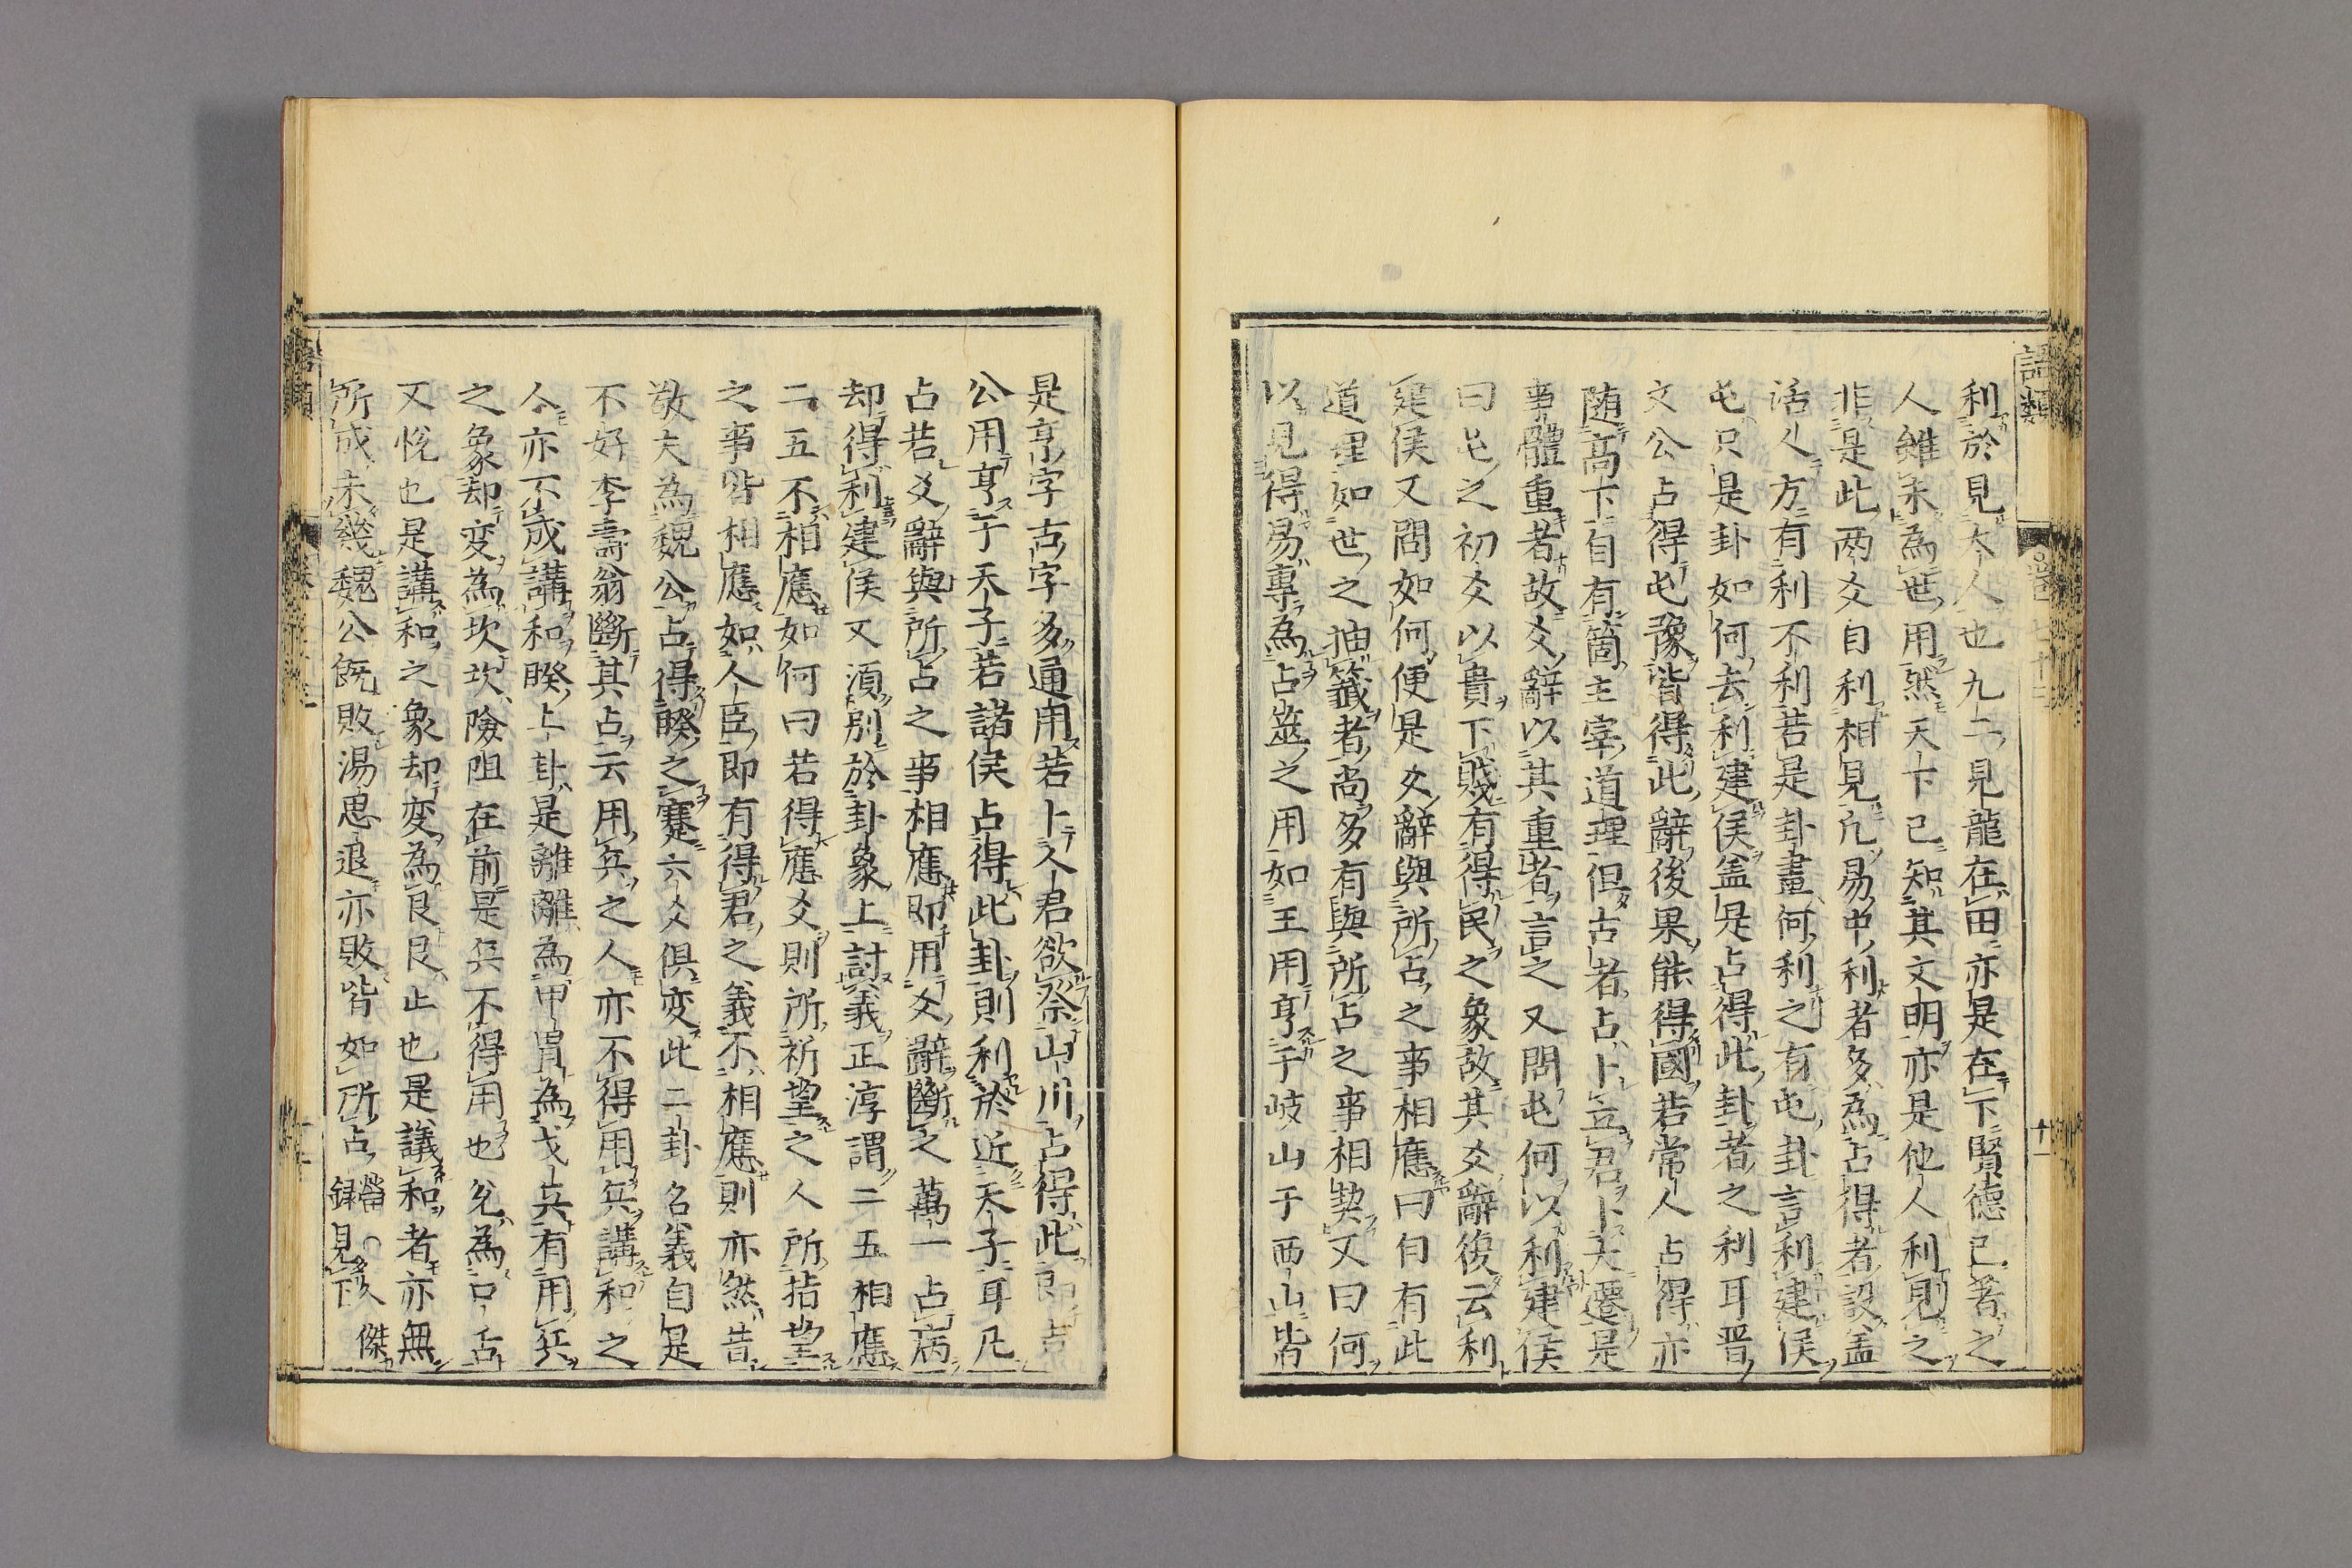 語類
十一
利於見大人也九二見龍在田亦是在下賢德已著之
人雖未為世用然天下已知其文明亦是他人利見之
非是此兩爻自利相見凡易中利者多為占得者設盖
活人方有利不利若是卦畫何利之有屯卦言利建侯
屯只是卦如何去利建侯盖是占得此卦者之利耳晋
文公占得屯豫皆得此辭後果能得國若常人占得亦
随高下自有箇主宰道理但古者占卜立君卜大遷是
事體重者故爻辭以其重者言之又問屯何以利建侯
曰屯之初爻以貴下賤有得民之象故其爻辭復云利
建侯又問如何便是爻辭與所占之事相應曰自有此
道理如世之抽籤者尚多有與所占之事相契又曰何
以見得易專為占筮之用如王用亨于岐山于西山皆
是亨字古字多通用若卜人君欲祭山川占得此即吉
公用亨于天子若諸侯占得此卦則利於近天子耳凡
占若爻辭與所占之事相應即用爻辭斷之萬一占病
却得利建侯又須別於卦象上討義正淳謂二五相應
二五不相應如何曰若得應爻則所祈望之人所指望
之事皆相應如人臣即有得君之義不相應則亦然昔
敬夫為魏公占得睽之蹇六爻俱変此二卦名義自是
不好李壽翁斷其占云用兵之人亦不得用兵講和之
人亦不成講和睽上卦是離離為甲冑為戈兵有用兵
之象却変為坎坎險阻在前是兵不得用也兌為口舌
又悅也是講和之象却変為艮艮止也是議和者亦無
所成未幾魏公既敗湯思退亦敗皆如所占 㽦 錄見下 人傑